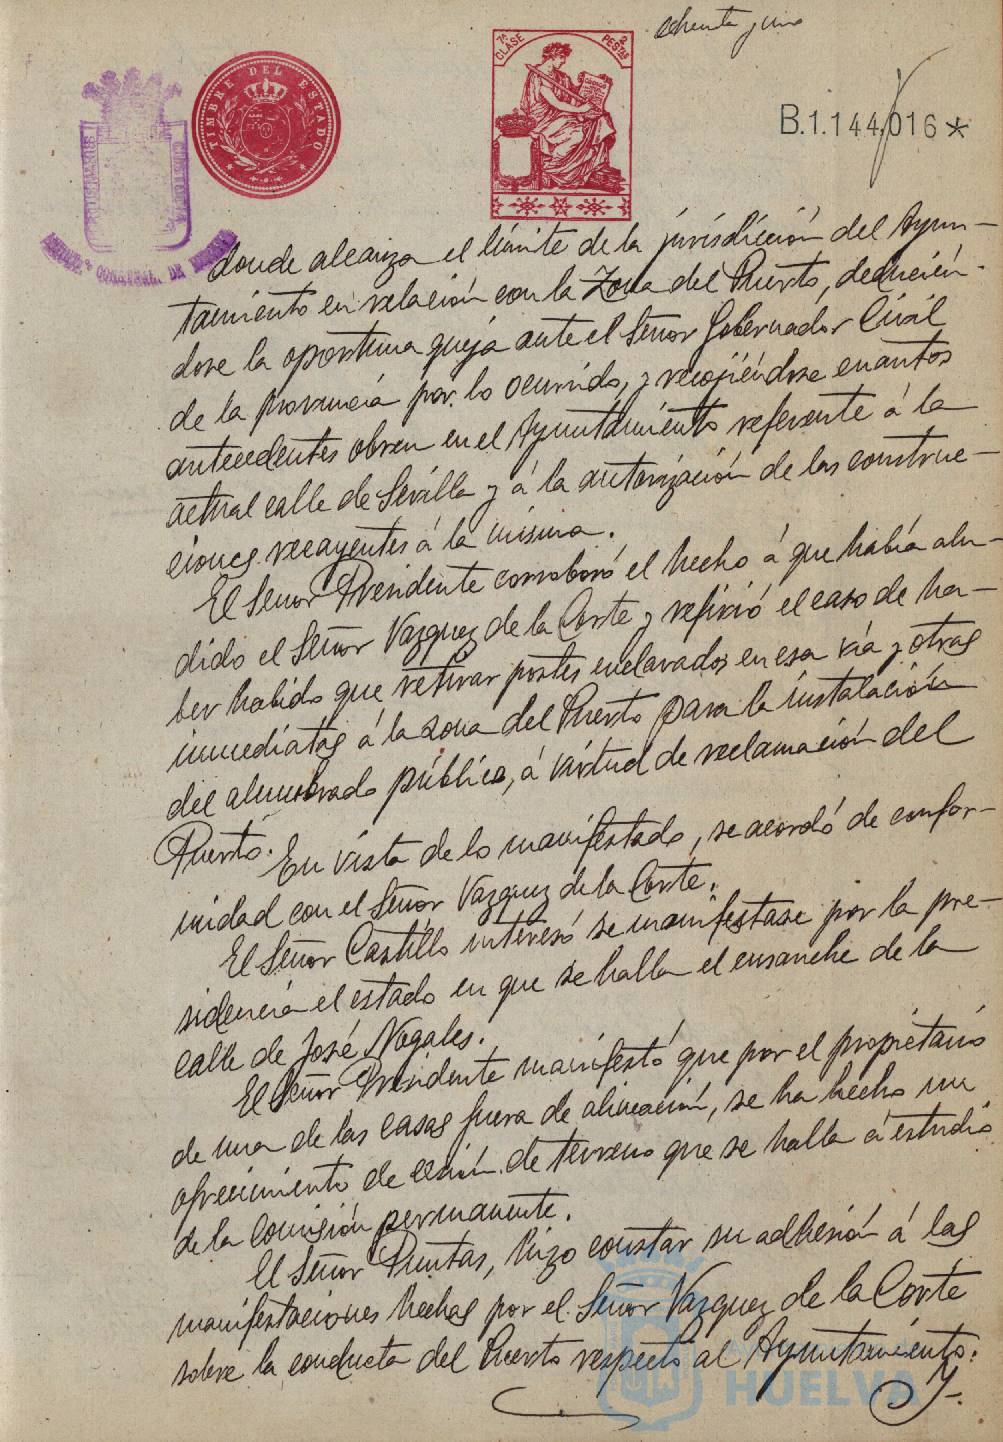 ochenta y uno
7ª CLASE 2 PESETAS
TIMBRE DEL ESTADO
B.1.144.016 *
donde alcanza el límite de la jurisdicción del Ayun-
tamiento en relación con la Zona del Puerto, deducién-
dose la oportuna queja ante el Señor Gobernador Civil
de la provincia por lo ocurrido, y recojiéndose cuantos
antecedentes obren en el Ayuntamiento referente á la
actual calle de Sevilla y á la autorización de las construc-
ciones recayentes á la misma.
El Señor Presidente corroboró el hecho á que había alu-
dido el Señor Vazquez de la Corte y refirió el caso de ha-
ber habido que retirar postes enclavados en esa vía y otras
inmediatas á la zona del Puerto para la instalación
del alumbrado público, á virtud de reclamación del
Puerto. En vista de lo manifestado, se acordó de confor-
midad con el Señor Vazquez de la Corte.
El Señor Castillo interesó se manifestase por la pre-
sidencia el estado en que se halla el ensanche de la
calle de José Nogales.
El Señor Presidente manifestó que por el propietario
de una de las casas fuera de alineación, se ha hecho un
ofrecimiento de cesión de terreno que se halla á estudio
de la Comisión permanente.
El Señor Puntas, hizo constar su adhesión á las
manifestaciones hechas por el Señor Vazquez de la Corte
sobre la conducta del Puerto respecto al Ayuntamiento.
Y.
HUELVA